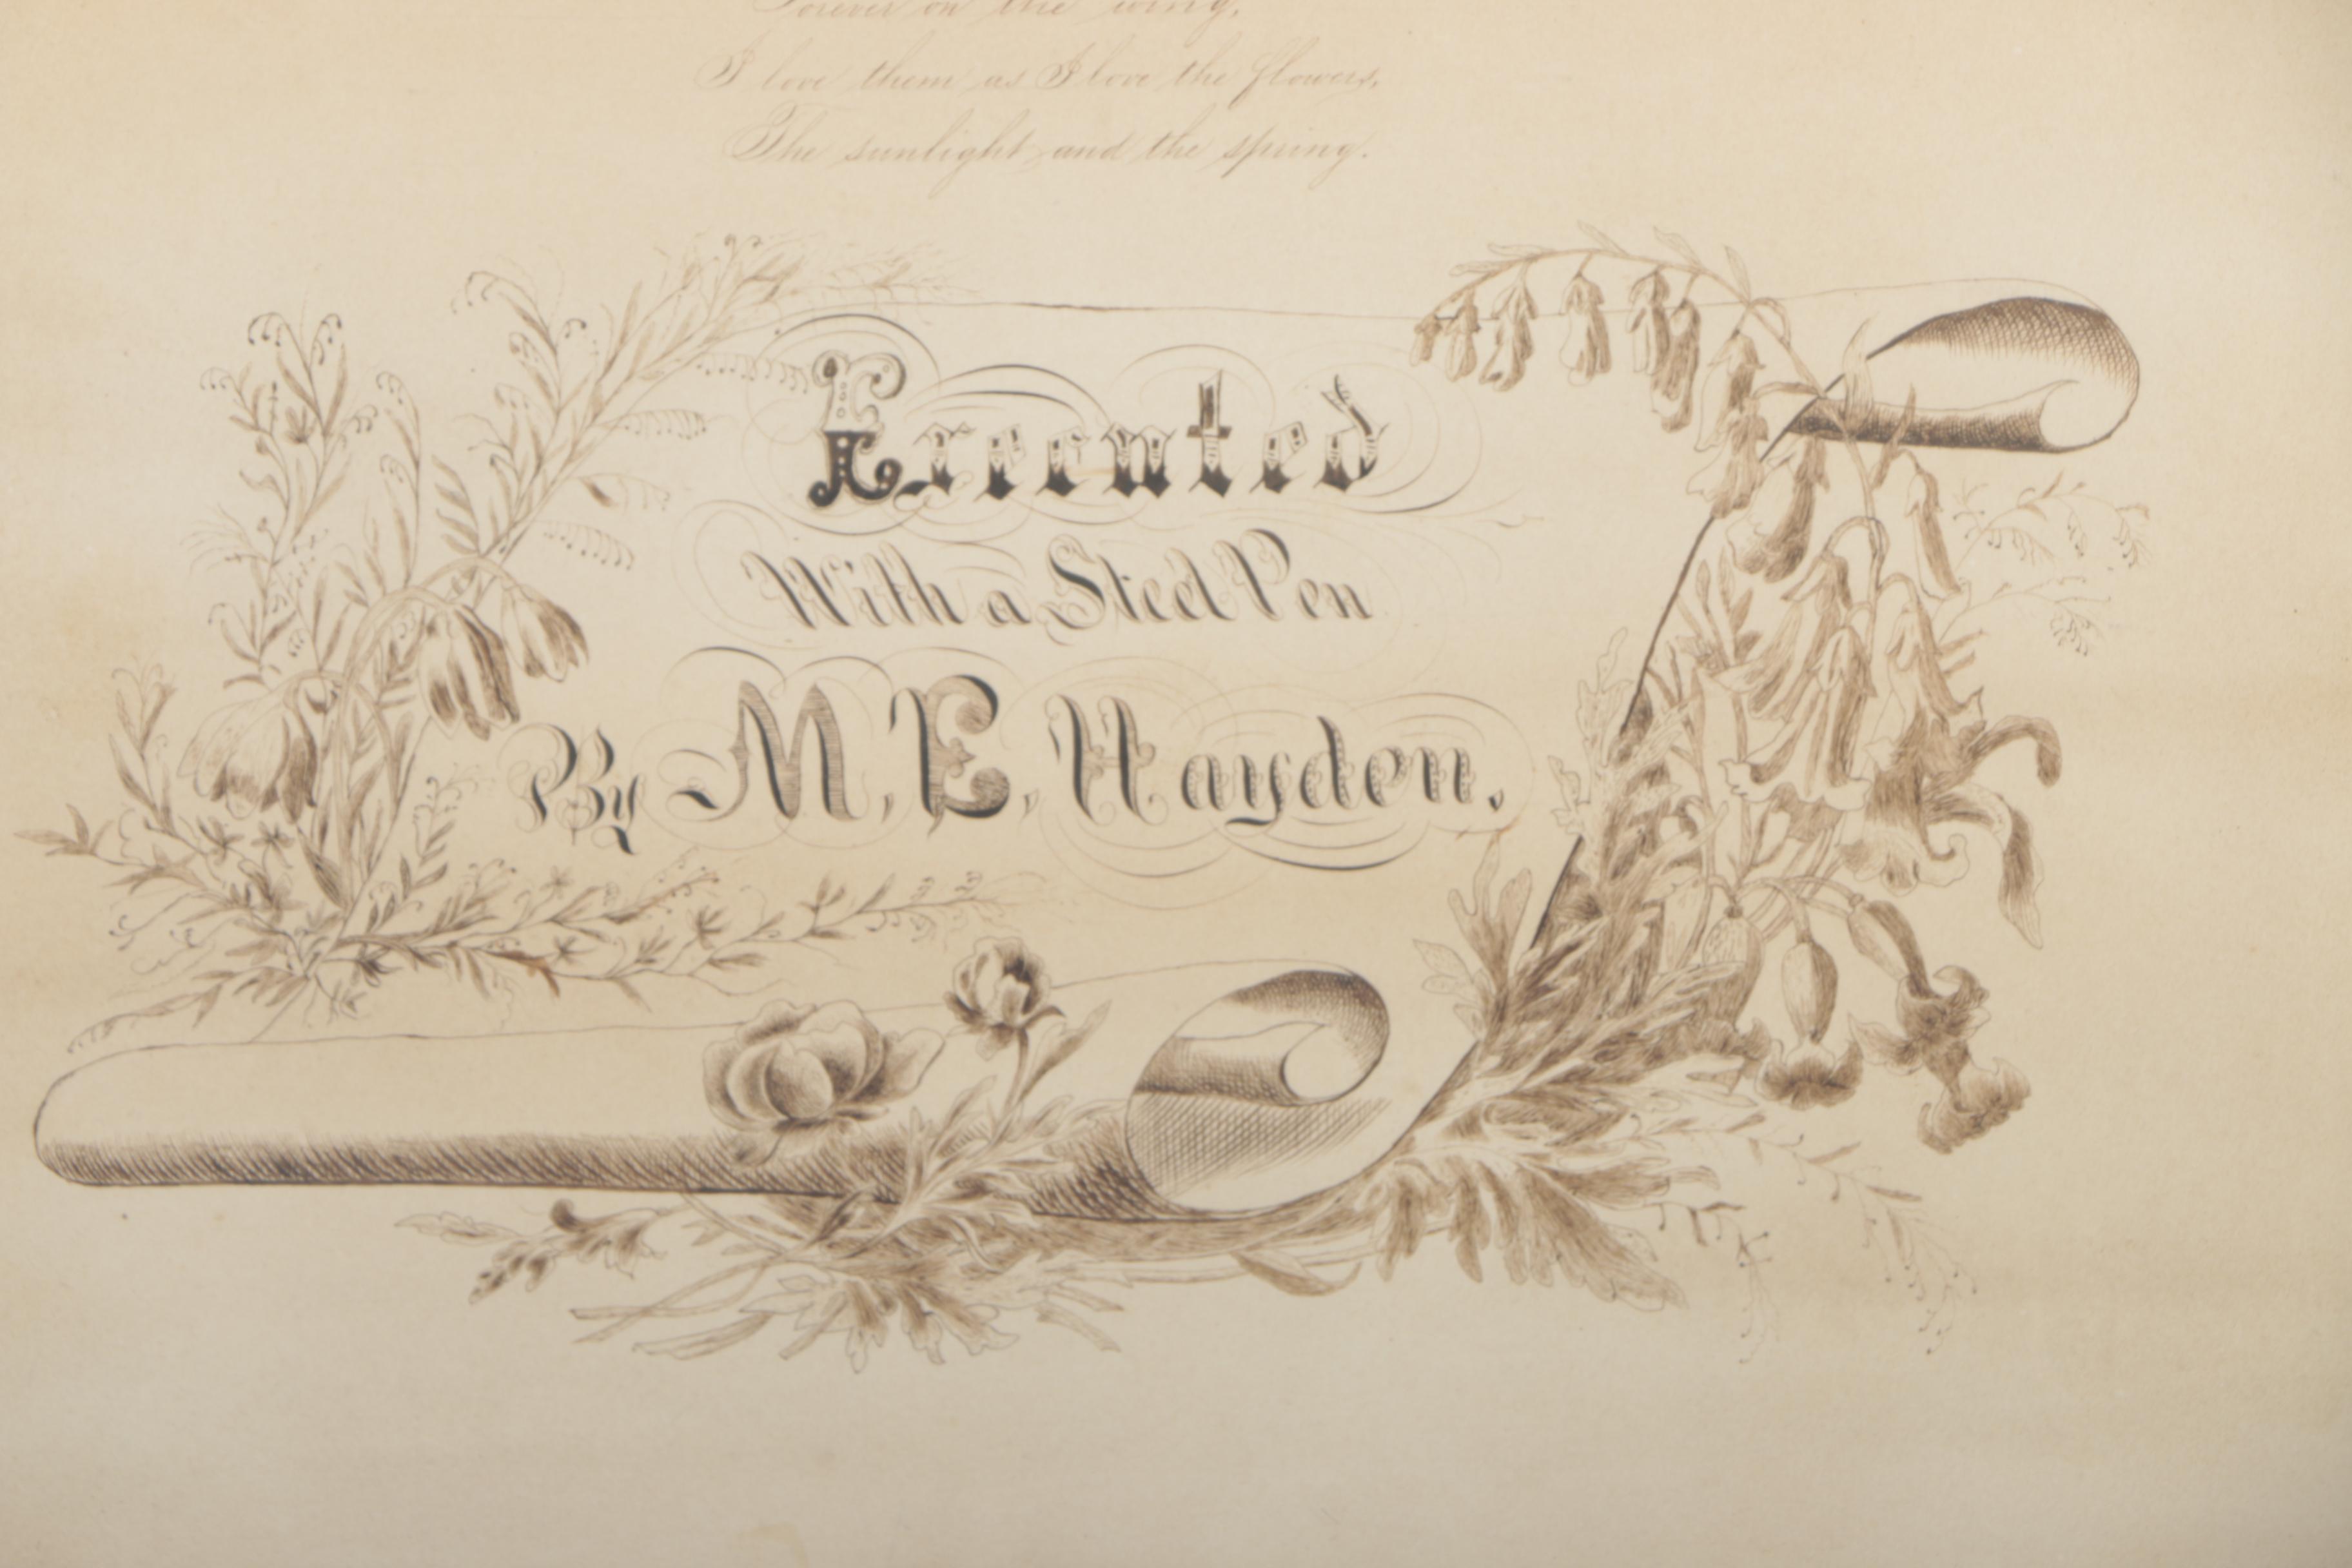 Forever on the wing,
I love them as I love the flowers,
The sunlight and the spring.
Executed
With a Steel Pen
By M. E. Hayden.